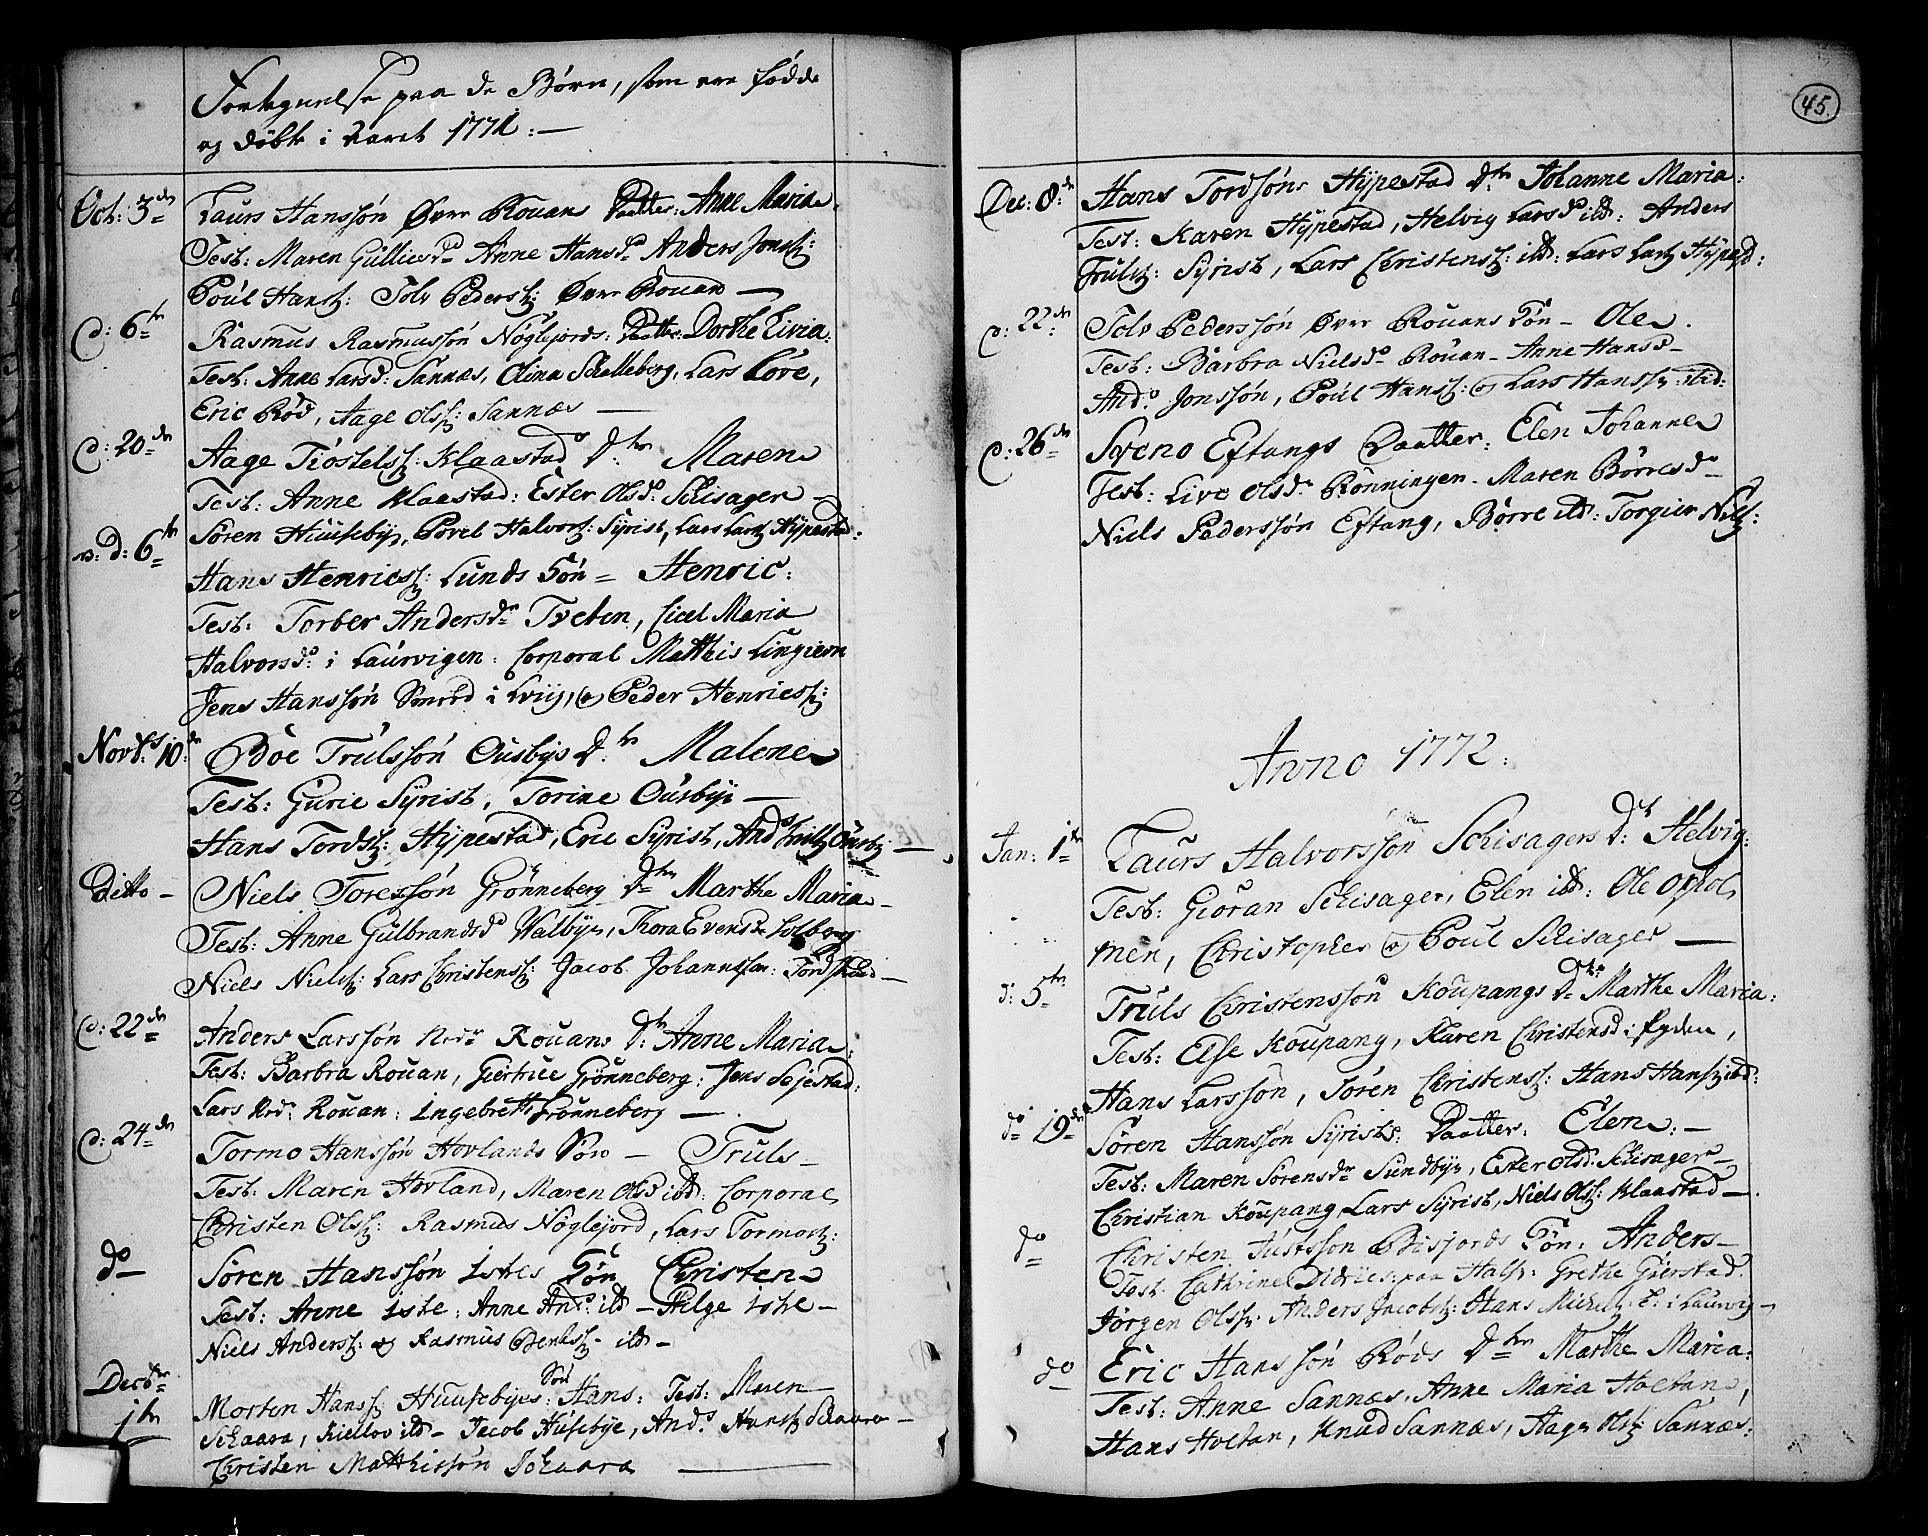 Fortegnelse paa de Børn, som ere fødde
og døbte i Aaret 1771:—
Oct: 3de Laurs Hanssøn Øvre Rouans Daatter: Anne Maria
Test: Maren Gulliesdr Anne Hansdr Anders Jonss:
Poul Hanss: Tolv Pederss: Øvre Rouan —
d: 6te Rasmus Rasmussøn Nøglejords: Daatter: Dorthe Livia:
Test: Anne Larsd: Sannæs, Olina Skelleberg, Lars Løve,
Eric Rød, Aage Olss: Sannæs —
d: 20de Aage Tiøstelss: Klaastad Dtr Maren
Test: Anne Klaastad: Ester Olsd: Schisager —
Søren Huuseby, Povel Halvors: Syrist, Lars Lars Hÿpestad:
d: 6te Hans Henricss: Lunds Søn — Henric:
Test: Torber Andersdr Tveten, Cicel Maria
Halvorsdr i Laurvigen: Corporal Matthis Lingieren
Jens Hanssøn Smed i Lviig, & Peder Henricss:
Novbr 10de Boe Trulssøn Ousbÿs Dtr Malene
Test: Gurie Syrist, Torine Ousbÿe —
Hans Tordss: Hÿpestad, Eric Syrist, Ands Truls Ousby —
Ditto — Niels Toressøn Grønneberg Dtr Marthe Maria —
Test: Anne Gulbrandsd Walbye, Thora Evensdr Solberg
Niels Nielss: Lars Christenss: Jacob Johannssøn: Tord —
d: 22de Anders Larssøn Nedr Rouans Dtr Anne Maria:
Test: Barbra Rouan, Giertrue Grønneberg: Jens Sejestad:
Lars Nedr Rouan: Ingebret Grønneberg —
d: 24de Tormo Hanssøn Hovlands Søn — Truls —
Test: Maren Hovland, Maren Olsd ibd: Corporal
Christen Olss: Rasmus Nøglejord, Lars Tormos:
do — Søren Hanssøn Istres Søn Christen
Test: Anne Iste: Anne And: ibd — Helge Iste —
Niels Anderss: og Rasmus Bentss: ibd —
Decbr 1te Morten Hanss: Huusebyes: Søn Hans: Test: Maren
Schaara, Kiellov ibd — Jacob Husebye, Ands Hanss Schaara —
Christen Matthissøn Schaara —
45.
Dec: 8de Hans Tordsøns Hÿpestad Dtr Johanne Maria:
Test: Karen Hÿpestad, Helvig Larsd ibd: Anders
Truls: Syrist, Lars Christenss: ibd: Lars Lars Hÿpesd:
d: 22de Tolv Pederssøn Øvre Rouans Søn — Ole.
Test: Barbra Nielsd Rouan — Anne Hansd —
And: Jonssøn, Poul Hanss: & Lars Hanss: ibid:
d: 26de Sveno Eftangs Daatter: Elen Johanne
Test: Live Olsdr Rønningen — Maren Børresd —
Niels Pederssøn Eftang, Børre ibd: Torgier Niels:
Anno 1772:
Jan: 1te Laurs Halvorssøn Schisagers Dtr Helvig:
Test: Giøran Schisager, Elen ibd: Ole Ophol,
men, Christopher & Poul Schisager —
d: 5te Truls Christenssøn Koupangs Dtr Marthe Maria:
Test: Else Koupang, Karen Christensd i Bÿden,
Hans Larssøn, Søren Christenss: Hans Hanss ibd:
do 19de Søren Hanssøn Syrists: Daatter: Elen: —
Test: Maren Sørensdr Sundbye, Ester Olsd: Schisager —
Christian Koupang Lars Syrist, Niels Olss: Klaastad —
do Christen Justssøn Bisjords Søn: Anders —
Test: Cathrine Didrics: paa Halsr: Grethe Gierstad:
Jørgen Olss: Anders Jacobss: Hans Michels: i Laurvig —
do Eric Hanssøn Røds Dtr Marthe Maria:
Test: Anne Sannæs, Anne Maria Holtan,
Hans Holtan, Knud Sannæs, Aage Olss: Sannæs: